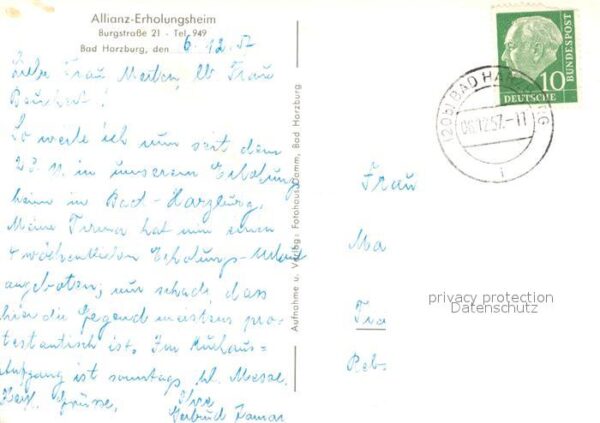 Allianz-Erholungsheim
Burgstraße 21 - Tel. 949
Bad Harzburg, den 6.12.57
Liebe Frau Meiten, lb Frau
So weile ich nun seit dem
23.11. in unserem Erholungs
heim in Bad-Harzburg,
Meine Firma hat mir einen
4 wöchentlichen Erholungs-Urlaub
angeboten; nur schade dass
hier die Gegend meistens pro-
testantisch ist. Im Kurhaus-
aufgang ist sonntags hl. Messe.
Herzl. Grüsse, Ihre
Gertrud
Aufnahme u. Verlag: Fotohaus Damm, Bad Harzburg
10
DEUTSCHE
BUNDESPOST
(20b) BAD HARZBURG
06.12.57.-11
i
Frau
Ma
Reb
privacy protection
Datenschutz